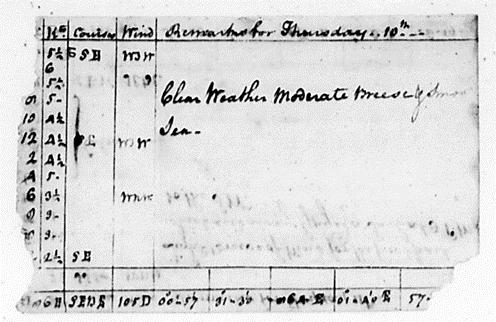 Kts Courses Wind Remarks for Thursday 10th
5½ SSE WSW
6
5½ " "
5 Clear Weather Moderate Breese & Smoo
10 4½ Sea
12 4½ WSW
2 4½
4 5
6 3½ WNW
3
3
2½ SE
105D 00-57 01-30 01-40 E 57